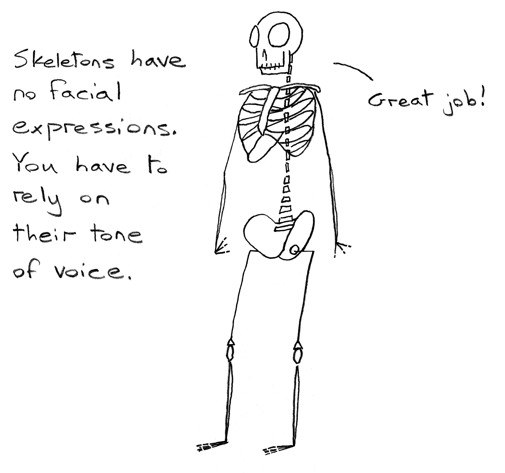 Skeletons have
no facial
expressions.
You have to
rely on
their tone
of voice.
Great job!